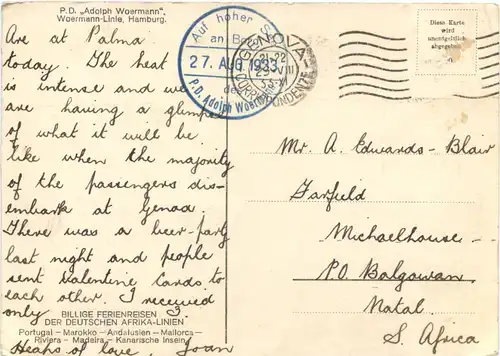 P.D. „Adolph Woermann",
Woermann-Linie, Hamburg.
Are at Palma
today. The heat
is intense and we
are having a glimpse
of what it will be
like when the majority
of the passengers dis-
embark at Genoa.
There was a beer-party
last night and people
sent Valentine Cards to
each other. I received
only 3.
BILLIGE FERIENREISEN
DER DEUTSCHEN AFRIKA-LINIEN
Portugal – Marokko – Andalusien – Mallorca –
Riviera – Madeira – Kanarische Inseln
Heaps of love, Joan
Auf hoher See
an Bord
27. AUG 1933
des
P.D. Adolph Woermann
GENOVA
CORRISPONDENZE
Diese Karte
wird
unentgeltlich
abgegeben
Mr. A. Edwards-Blair
Garfield
Michaelhouse
P.O. Balgowan
Natal.
S. Africa